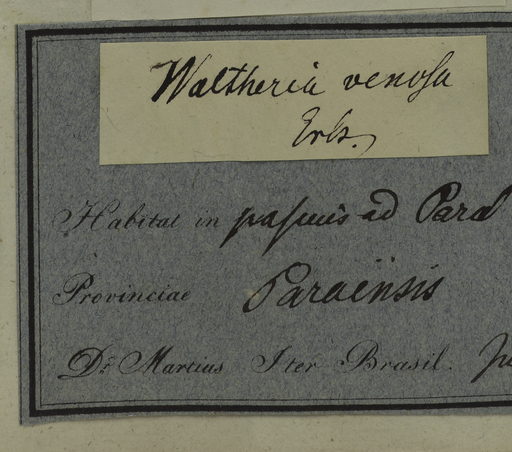 Waltheria venosa
Habitat in pascuis ad Pará
Provinciae Paraënsis
Dr. Martius Iter Brasil.